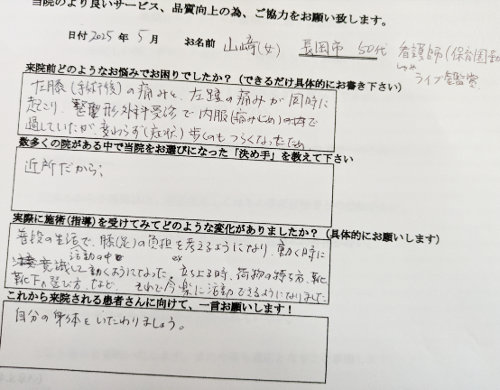 当院のより良いサービス、品質向上の為、ご協力をお願い致します。
日付 2025年 5月 お名前 山崎(女) 長岡市 50代 看護師(保育園勤
ライブ鑑賞
来院前どのようなお悩みでお困りでしたか?(できるだけ具体的にお書き下さい)
左膝(手術後)の痛みと、左腰の痛みが同時に
起こり、整形外科受診で内服(痛み止め)の内で
過していたが変わらず(症状)歩くのもつらくなったため。
数多くの院がある中で当院をお選びになった「決め手」を教えて下さい
近所だから。
実際に施術(指導)を受けてみてどのような変化がありましたか?(具体的にお願いします)
普段の生活で、膝(足)の負担を考えるようになり、動く時に
活動の中
意識して動くようになった。立ち上る時、荷物の持ち方、靴
靴下の選び方、など、それで今楽に活動できるようになりました
これから来院される患者さんに向けて、一言お願いします!
自分の身体をいたわりましょう。